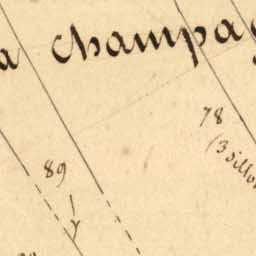 a champag
78
(3 sillon
89